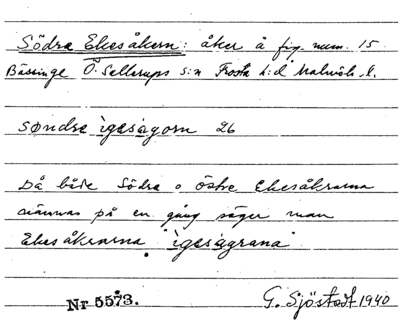 Södra Ekesåkern: åker å fig. num. 15
Bässinge Ö. Sallerups s:n Frosta h:d Malmöh. l.
søndre igesagorn 26
Då både Södra o Östra Ekesåkrarna
nämnas på en gång säger man
Ekesåkrarna igesagrana
Nr 5573. G. Sjöstedt 1940